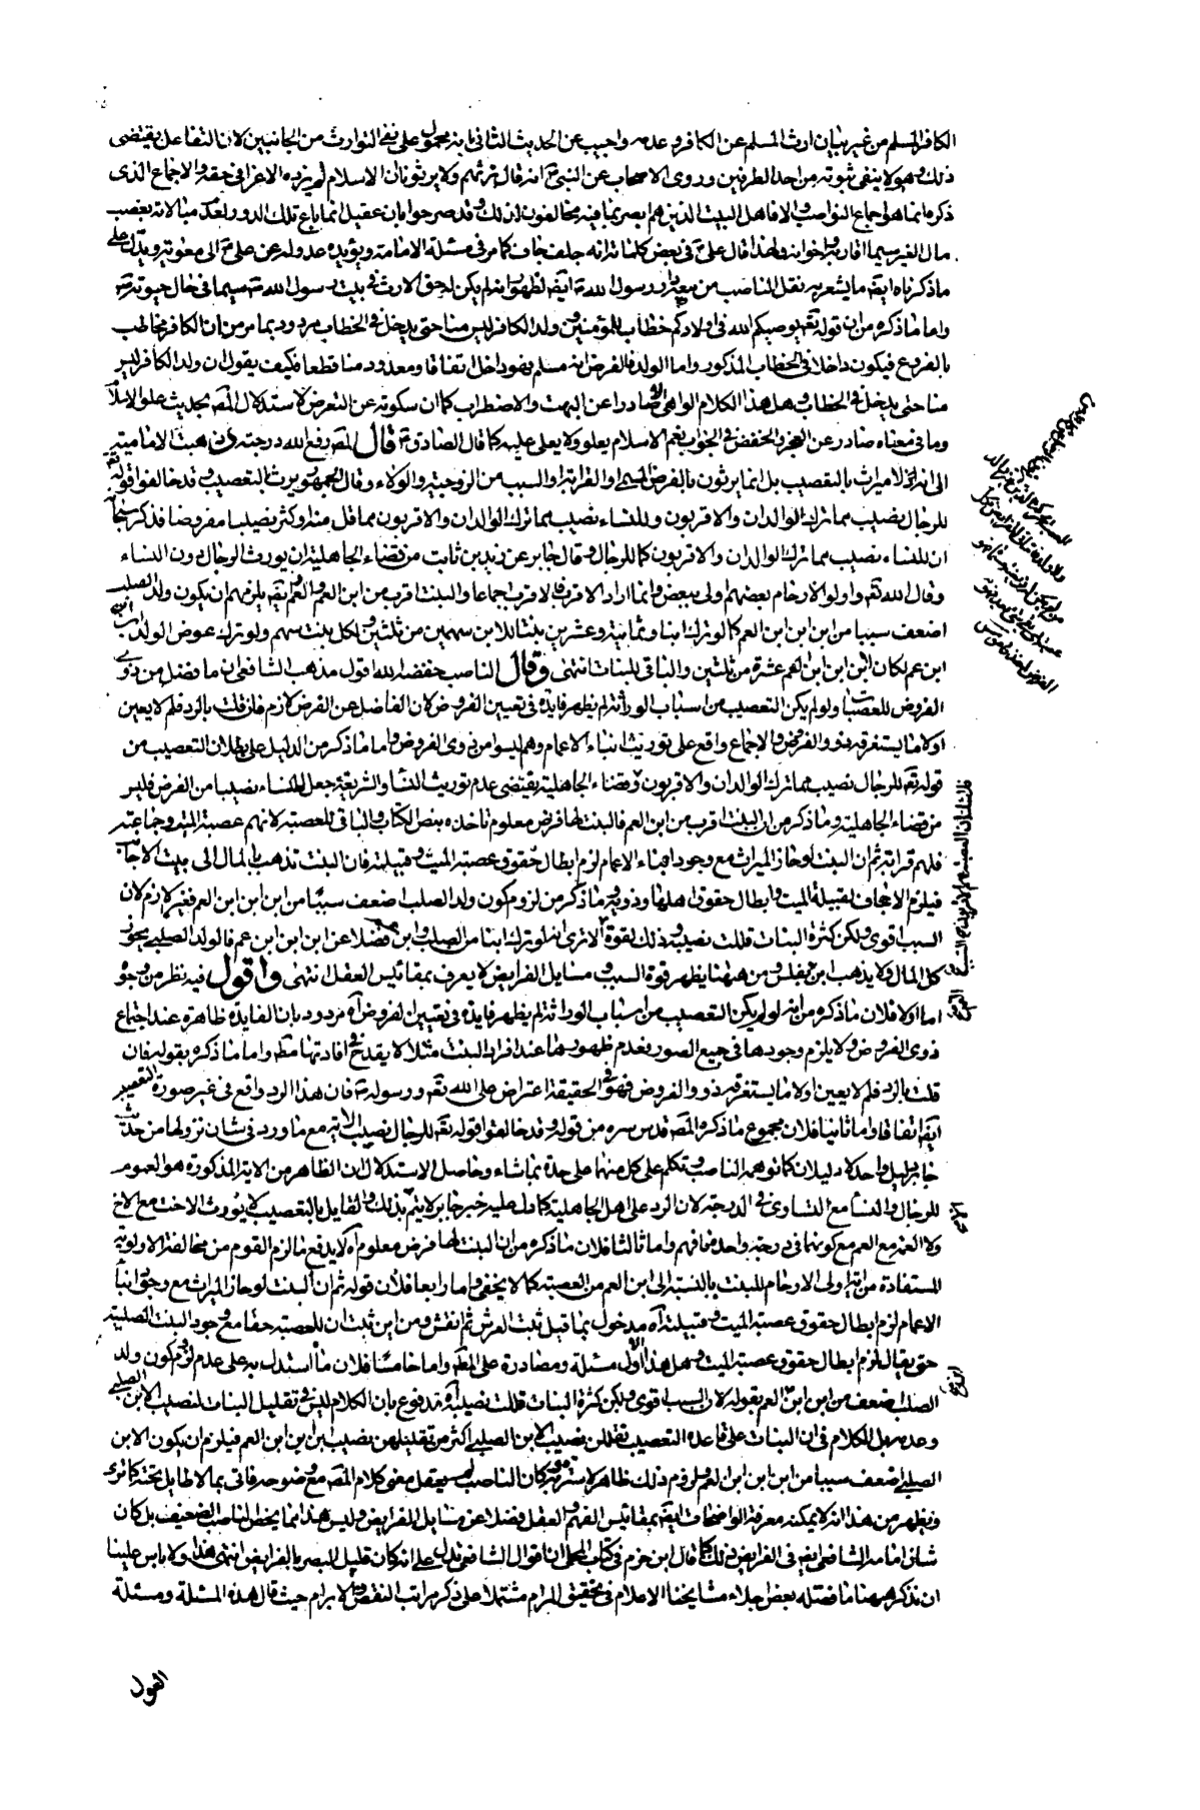 الكافر المسلم من غير بيان ارث المسلم عن الكافر وعدمه واجيب عن الحديث الثاني بانه محمول على نفي التوارث من الجانبين لان التفاعل يقتضى
ذلك وهو لا ينفى ثبوته من احد الطرفين وروى الاصحاب عن النبي ص انه قال نرثهم ولا يرثونا ان الاسلام لم يزده الا عزا في حقه والاجماع الذى
ذكره انما هو اجماع النواصب والا فاهل البيت الذين هم ابصر بما فيه مخالفون لذلك وقد صرحوا بان عقيل انما باع تلك الدور بغصب
مال الغير سيما اقاربه واخوانه ولهذا قال علي ع في بعض كلماته انه جلف جاف كما مر في مسئلة الامامة ويؤيده عدوله عن علي ع الى معوية ويدل على
ما ذكرناه ايضا ما يشعر به نقل الناصب من رسول الله ص ايضا لظهور انه لم يكن لحق الارث في بيت رسول الله ص سيما في حال حيوته ص
واما ما ذكره من ان قوله تعالى يوصيكم الله في اولادكم خطاب للمؤمنين وولد الكافر ليس منا حتى يدخل في الخطاب مردود بما مر من ان الكافر مخاطب
بالفروع فيكون داخلا في الخطاب المذكور واما الولد فالفرض انه مسلم فهو داخل اتفاقا ومعدود منا قطعا فكيف يقول ان ولد الكافر ليس
منا حتى يدخل في الخطاب وهل هذا الكلام الواهي الا صادرا عن البهت والاضطراب كما ان سكوته عن التعرض لاستدلال المصـ بحديث علو الاسلام
وما في معناه صادر عن العجز والخفض في الجواب نعم الاسلام يعلو ولا يعلى عليه كما قال الصادق ع قال المصـ رفع الله درجته ذهبت الامامية
الى انه لا ميراث بالتعصيب بل انما يرثون بالفرض المسمى او القرابة او السبب من الزوجية والولاء وقال الجمهور يورث بالتعصيب وقد خالفوا قوله تعالى
للرجال نصيب مما ترك الوالدان والاقربون وللنساء نصيب مما ترك الوالدان والاقربون مما قل منه او كثر نصيبا مفروضا فذكر سبحانه
ان للنساء نصيب مما ترك الوالدان والاقربون كما للرجال وقال جابر عن زيد بن ثابت من قضاء الجاهلية ان يورث الرجال دون النساء
وقال الله تعالى واولوا الارحام بعضهم اولى ببعض وانما اراد الاقرب فالاقرب اجماعا والبنت اقرب من ابن العم والعم ايضا يلزمهم ان يكون ولد الصلب
اضعف سببا من ابن ابن ابن العم كما لو ترك ابنا وثمانية وعشرين بنتا للابن سهمين من ثلثين ولكل بنت سهم ولو ترك عوض الولد ابن ابن
ابن عم لكان لابن ابن ابن العم عشرة من ثلثين والباقي للبنات انتهى وقال الناصب خفضه الله اقول مذهب الشافعي ان ما فضل من ذوي
الفروض للعصبات ولو لم يكن التعصيب من اسباب الوراثة لم يظهر فايدة في تعيين الفروض لان الفاضل عن الفرض لازم فان قلت بالرد فلم لا يعين
اولا ما يستغرقه ذوو الفرض والاجماع واقع على توريث ابناء الاعمام وهم ليسوا من ذوى الفروض واما ما ذكر من الدليل على بطلان التعصيب من
قوله تعالى للرجال نصيب مما ترك الوالدان والاقربون وقضاء الجاهلية يقتضى عدم توريث النساء والشريعة جعل للنساء نصيبا من الفرض فليس
من قضاء الجاهلية وما ذكر من ان البنت اقرب من ابن العم فالبنت لها فرض معلوم تاخذه بنص الكتاب والباقى للعصبة لانهم عصبة الميت وجماعته
فلهم قرابة ثم ان البنت لو حاز الميراث مع وجود ابناء الاعمام لزم ابطال حقوق عصبة الميت وقبيلته فان البنت تذهب بالمال الى بيت الاجانب
فيلزم الاجحاف لقبيلة الميت وابطال حقوق اهلها وذويه وما ذكر من لزوم كون ولد الصلب اضعف سببا من ابن ابن ابن العم فغير لازم لان
السبب اقوى ولكن كثرة البنات قللت نصيبه وذلك لقوة الا ترى انه لو ترك ابنا من الصلب وابن عم فضلا عن ابن ابن ابن عم فالولد الصلبي يحوز
كل المال ولا يذهب ابن عم بفلس ومن ههنا يظهر قوة السبب ومسايل الفرايض لا يعرف بمقائيس العقل انتهى واقول فيه نظر من وجوه
اما اولا فلان ما ذكره من انه لو لم يكن التعصيب من اسباب الوراثة لم يظهر فايدة في تعيين الفروض آه مردود بان الفايدة ظاهرة عند اجتماع
ذوى الفروض ولا يلزم وجودها في جميع الصور فعدم ظهورها عند افراد البنت مثلا لا يقدح في افادتها مطـ واما ما ذكره بقوله فان
قلت بالرد فلم لا يعين اولا ما يستغرقه ذوو الفروض فهو في الحقيقة اعتراض على الله تعالى ورسوله ص فان هذا الرد واقع في غير صورة التعصيب
ايضا اتفاقا واما ثانيا فلان مجموع ما ذكره المصـ قدس سره من قوله وقد خالفوا قوله تعالى للرجال نصيب الاية مع ما ورد في شان نزولها من حديث
جابر دليل واحد لا دليلان كما توهمه الناصب وتكلم على كل منهما على حدة بما شاء وحاصل الاستدلال ان الظاهر من الاية المذكورة هو العموم
للرجال والنساء مع التساوى في الدرجة لان الرد على اهل الجاهلية كما دل عليه خبر جابر لا يتم بذلك والقايل بالتعصيب لا يورث الاخت مع الاخ
ولا العمة مع العم مع كونهما في درجة واحدة فافهم واما ثالثا فلان ما ذكره من ان البنت لها فرض معلوم آه لا يدفع ما لزم القوم من مخالفة الاولوية
المستفادة من اية اولى الارحام للبنت بالنسبة الى ابن العم من العصبة كما لا يخفى واما رابعا فلان قوله ثم ان البنت لو حاز الميراث مع وجود ابناء
الاعمام لزم ابطال حقوق عصبة الميت وقبيلته آه مدخول بما قيل ثبت العرش ثم انقش ومن اين ثبت ان للعصبة حقا مع وجود البنت الصلبية
حتى يقال لزم ابطال حقوق عصبة الميت وهل هذا الا اول مسئلة ومصادرة على المطـ واما خامسا فلان ما استدل به على عدم لزوم كون ولد
الصلب اضعف من ابن ابن العم بقوله لان السبب اقوى ولكن كثرة البنات قللت نصيبه آه مدفوع بان الكلام ليس في تقليل البنات لنصيب الابن الصلبي
وعدمه بل الكلام في ان البنات على قاعدة التعصيب تقللن نصيب الابن الصلبي اكثر من تقليلهن نصيب ابن ابن ابن العم فيلزم ان يكون الابن
الصلبي اضعف سببا من ابن ابن ابن العم ولزوم ذلك ظاهر لا سترة فيه وكان الناصب لم يتعقل معنى كلام المصـ مع وضوحه فاتى بما لا طايل تحته كما ترى
ويظهر من هذا انه لا يمكنه معرفة الواضحات ايضا بمقائيس الفهم والعقل فضلا عن مسايل الفرايض وليس هذا مما يخص الناصب الضعيف بل كان
شان امامه الشافعي ايضا في الفرايض ذلك كما قال ابن حزم في كتاب المحلى ان اقوال الشافعي تدل على انه كان قليل البصر بالفرايض انتهى هذا ولا باس علينا
ان نذكر ههنا ما فصله بعض اجلاء مشايخنا الاعلام في تحقيق المرام مشتملا على ذكر مراتب النقض والابرام حيث قال هذه المسئلة ومسئلة
العول